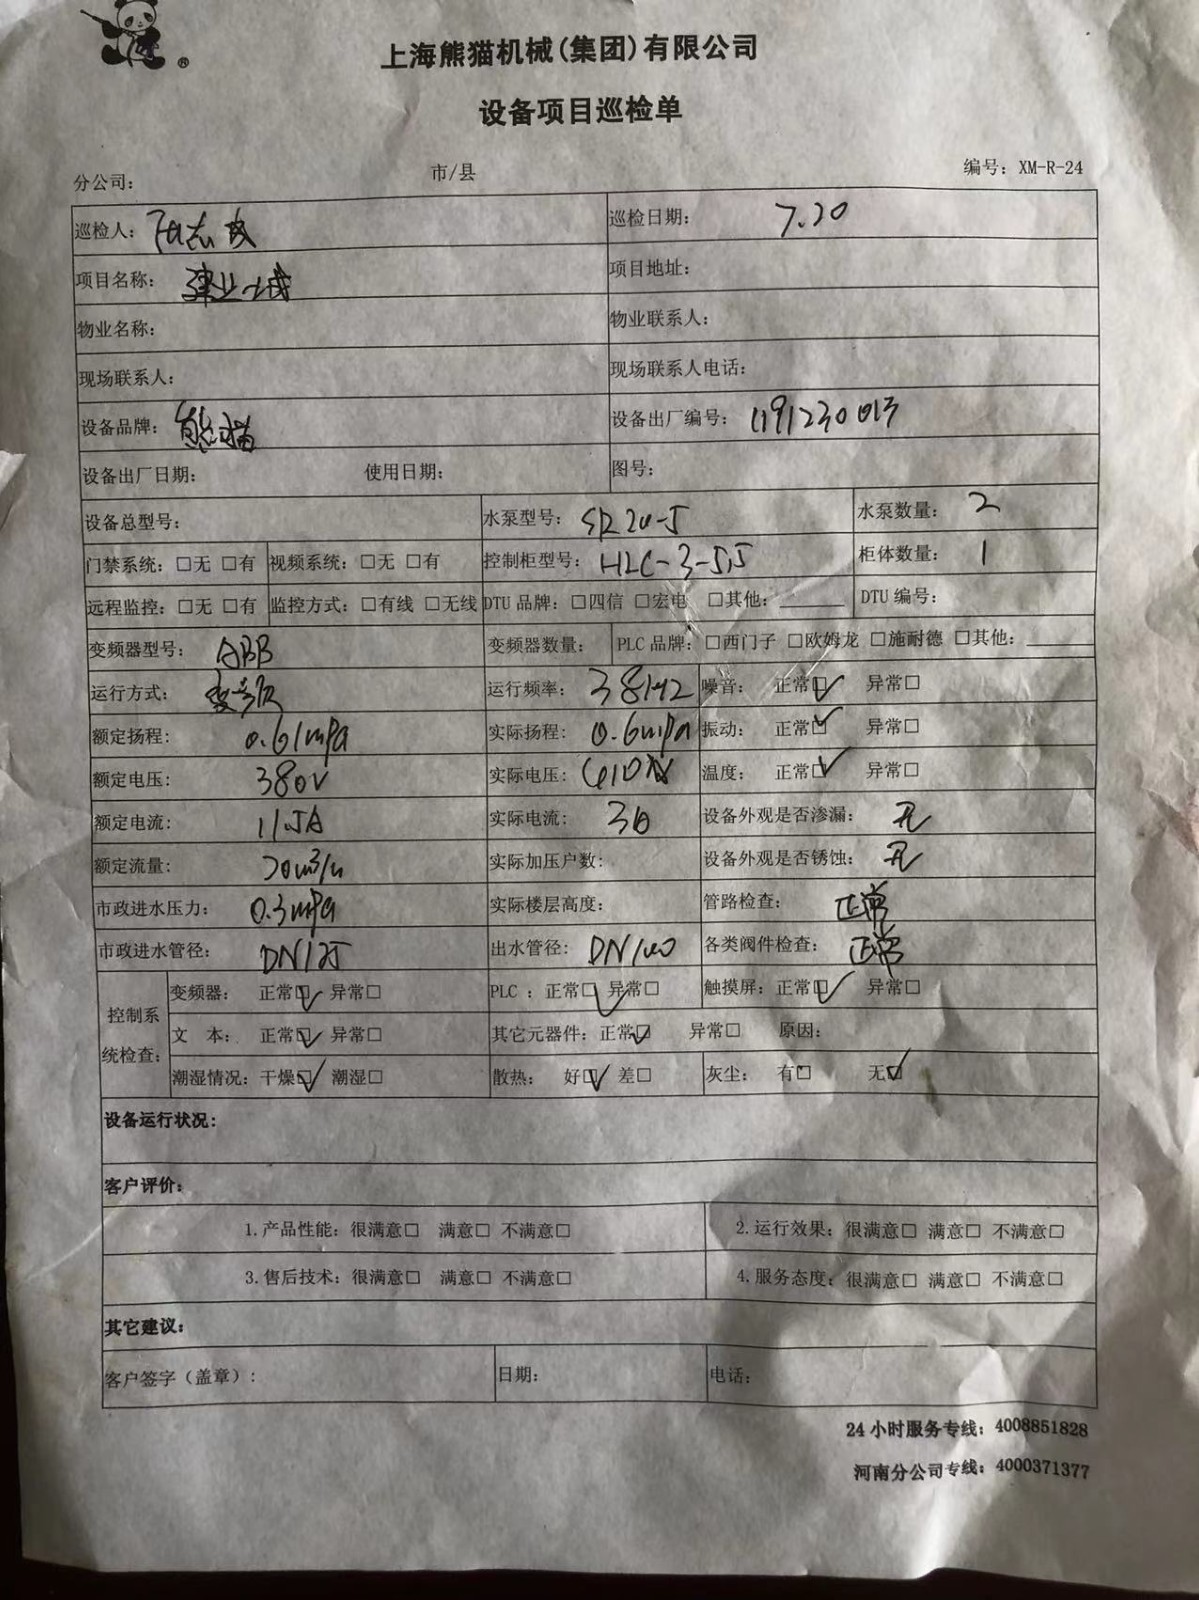 ®
上海熊猫机械(集团)有限公司
设备项目巡检单
分公司: 市/县 编号: XM-R-24
巡检人: 巡检日期: 7.20
项目名称: 建业城 项目地址:
物业名称: 物业联系人:
现场联系人: 现场联系人电话:
设备品牌: 熊猫 设备出厂编号: 1191230013
设备出厂日期: 使用日期: 图号:
设备总型号: 水泵型号: SR20-5 水泵数量: 2
门禁系统: □无 □有 视频系统: □无 □有 控制柜型号: HLC-3-5.5 柜体数量: 1
远程监控: □无 □有 监控方式: □有线 □无线 DTU 品牌: □四信 □宏电 □其他: ______ DTU 编号:
变频器型号: ABB 变频器数量: PLC 品牌: □西门子 □欧姆龙 □施耐德 □其他: ______
运行方式: 变频 运行频率: 38HZ 噪音: 正常☑ 异常□
额定扬程: 0.61mpa 实际扬程: 0.6mpa 振动: 正常☑ 异常□
额定电压: 380V 实际电压: 温度: 正常☑ 异常□
额定电流: 11.5A 实际电流: 设备外观是否渗漏: 无
额定流量: 20m³/h 实际加压户数: 设备外观是否锈蚀: 无
市政进水压力: 0.3mpa 实际楼层高度: 管路检查: 正常
市政进水管径: DN125 出水管径: DN100 各类阀件检查: 正常
控制系统检查: 变频器: 正常☑ 异常□ PLC : 正常☑ 异常□ 触摸屏: 正常☑ 异常□
文 本: 正常☑ 异常□ 其它元器件: 正常☑ 异常□ 原因:
潮湿情况: 干燥☑ 潮湿□ 散热: 好☑ 差□ 灰尘: 有□ 无☑
设备运行状况:
客户评价:
1.产品性能: 很满意□ 满意□ 不满意□ 2.运行效果: 很满意□ 满意□ 不满意□
3.售后技术: 很满意□ 满意□ 不满意□ 4.服务态度: 很满意□ 满意□ 不满意□
其它建议:
客户签字（盖章）: 日期: 电话:
24 小时服务专线: 4008851828
河南分公司专线: 4000371377